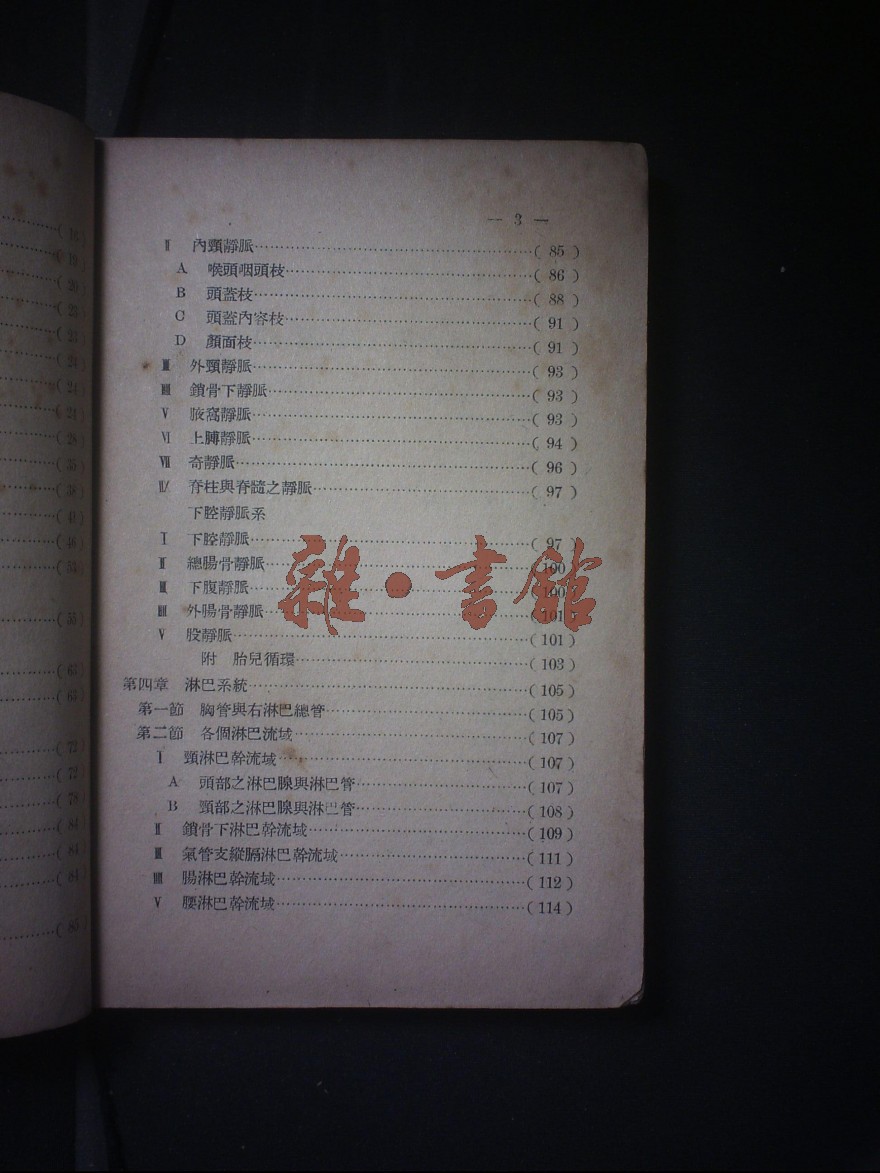 — 3 —
Ⅱ 內頸靜脈……(85)
A 喉頭咽頭枝……(86)
B 頭蓋枝……(88)
C 頭蓋內容枝……(91)
D 顏面枝……(91)
Ⅲ 外頸靜脈……(93)
IIII 鎖骨下靜脈……(93)
Ⅴ 腋窩靜脈……(93)
Ⅵ 上膊靜脈……(94)
Ⅶ 奇靜脈……(96)
脊柱與脊髓之靜脈……(97)
下腔靜脈系
Ⅰ 下腔靜脈……(97)
Ⅱ 總腸骨靜脈……(100)
Ⅲ 下腹靜脈……(100)
IIII 外腸骨靜脈……(101)
Ⅴ 股靜脈……(101)
附 胎兒循環……(103)
第四章 淋巴系統……(105)
第一節 胸管與右淋巴總管……(105)
第二節 各個淋巴流域……(107)
Ⅰ 頸淋巴幹流域……(107)
A 頭部之淋巴腺與淋巴管……(107)
B 頸部之淋巴腺與淋巴管……(108)
Ⅱ 鎖骨下淋巴幹流域……(109)
Ⅲ 氣管支縱膈淋巴幹流域……(111)
IIII 腸淋巴幹流域……(112)
Ⅴ 腰淋巴幹流域……(114)
雜·書館